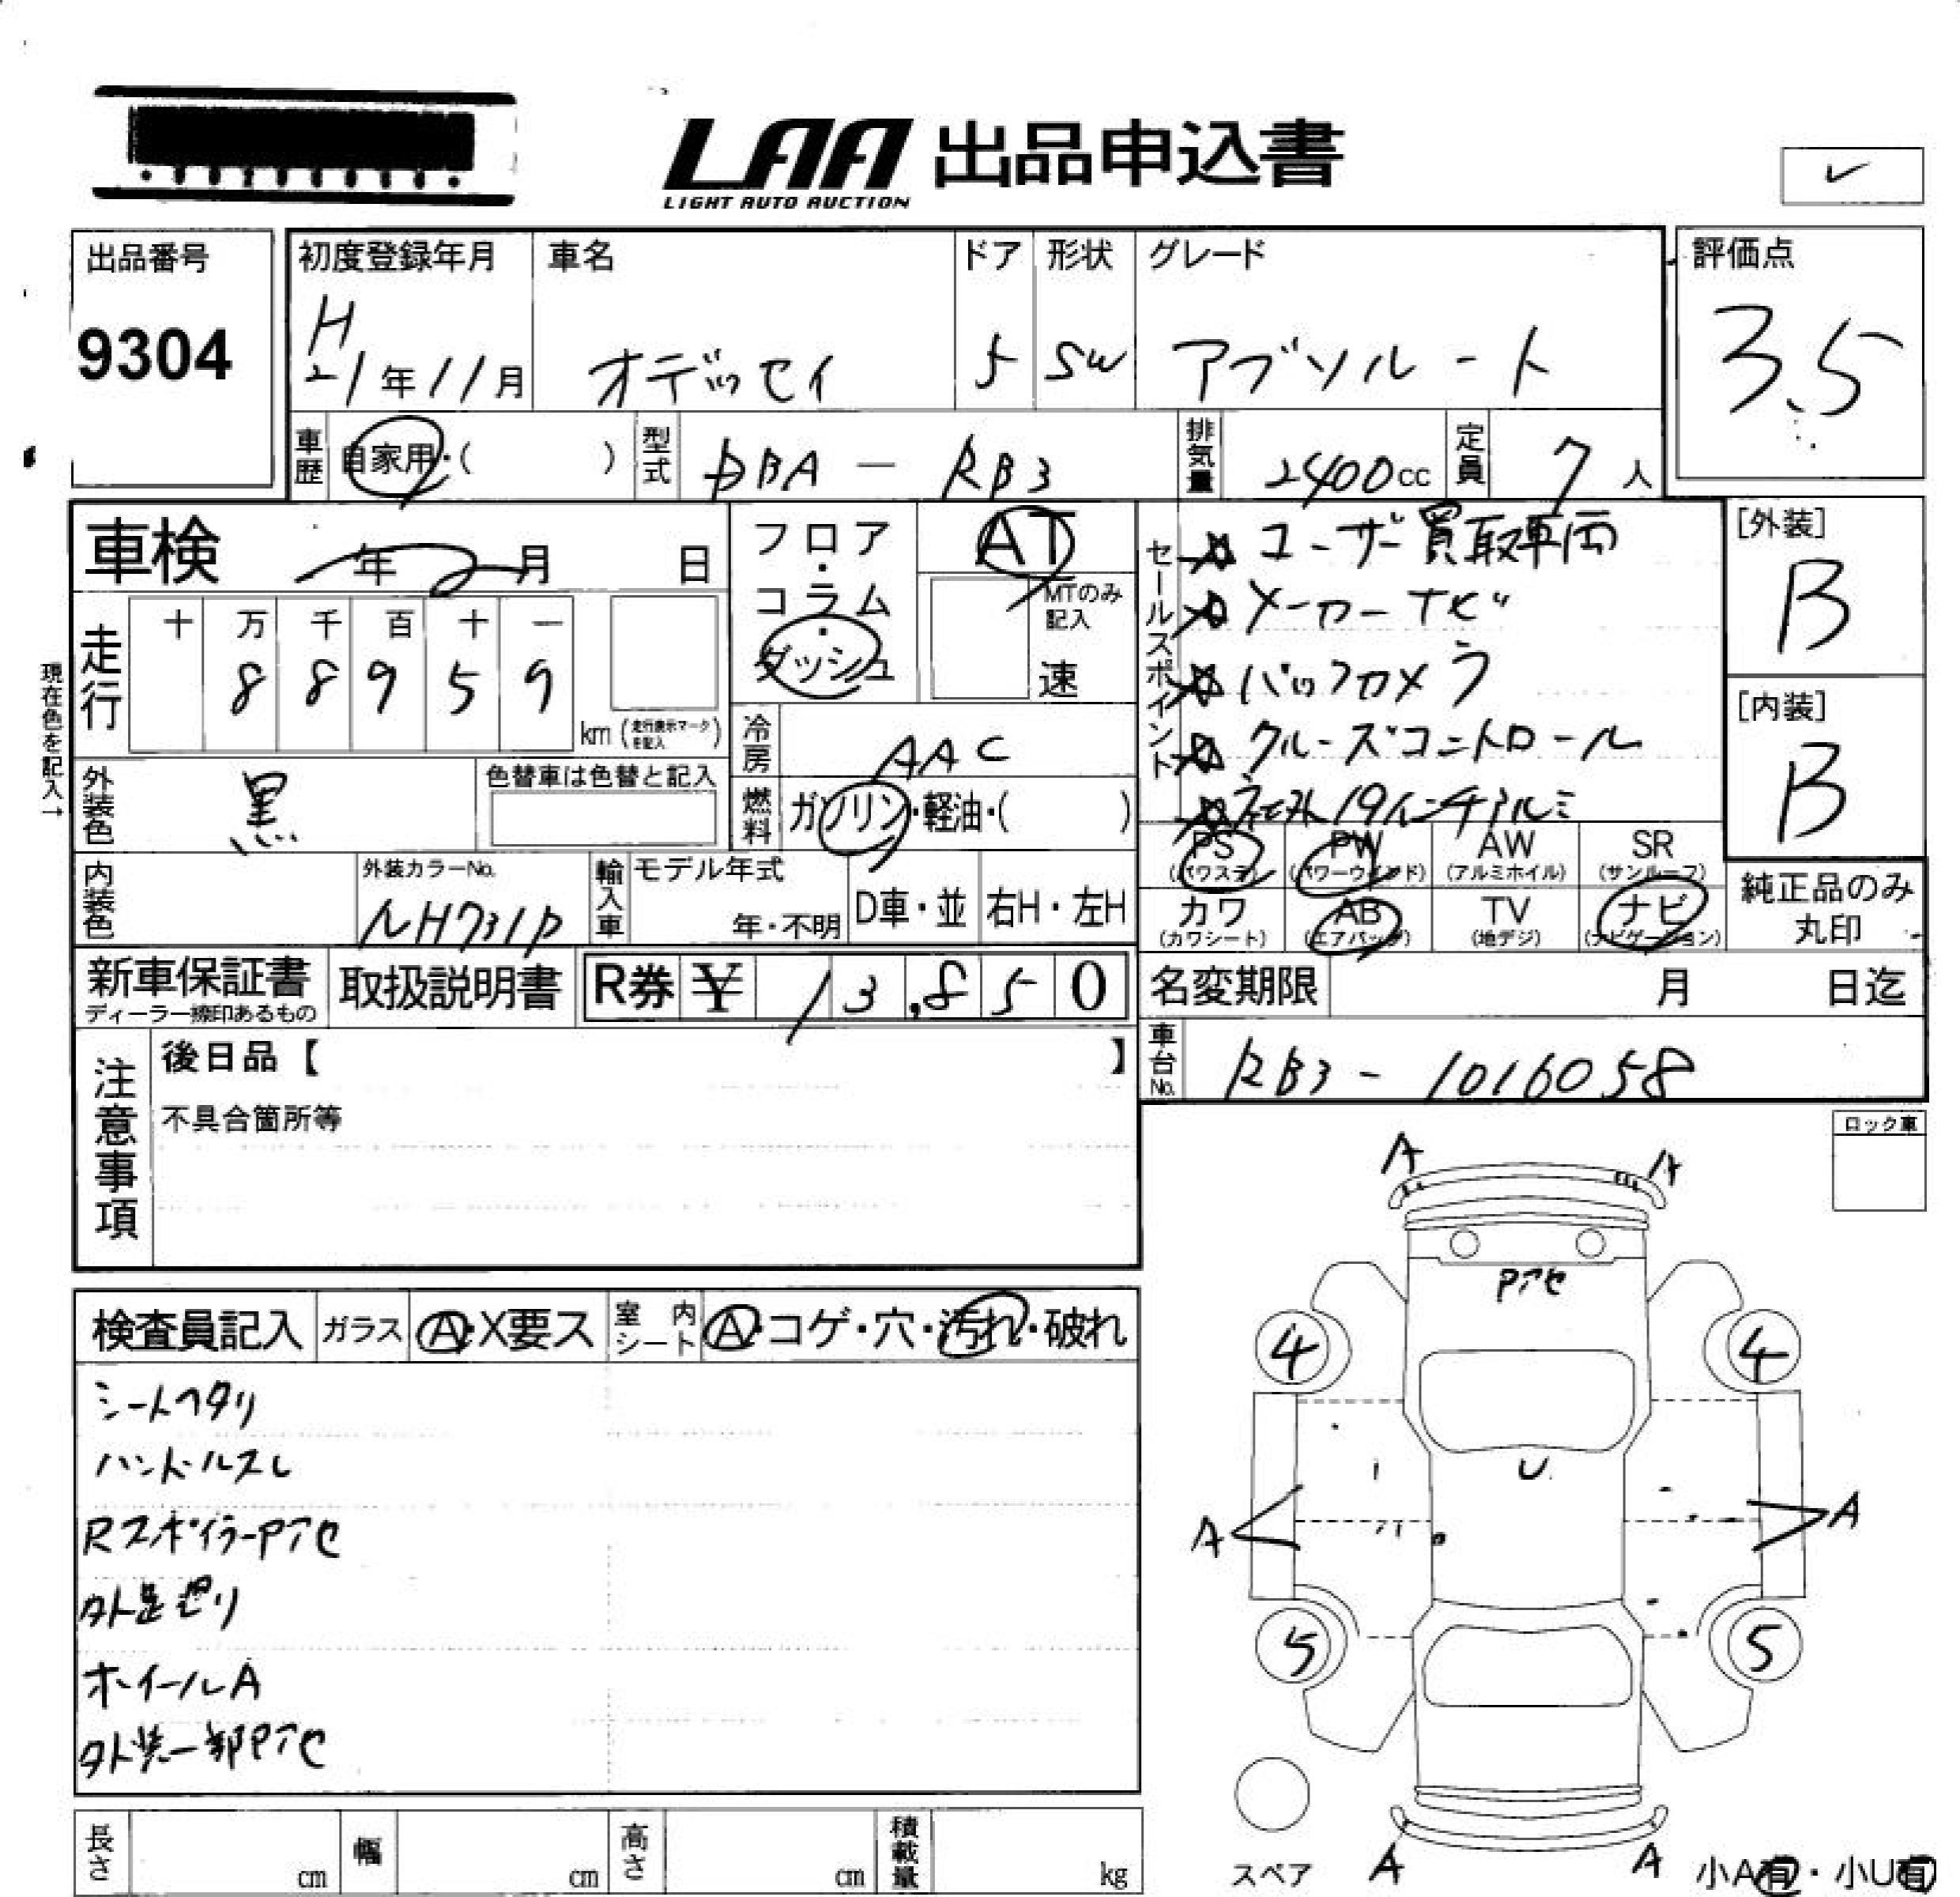 LAA 出品申込書
LIGHT AUTO AUCTION
出品番号
9304
初度登録年月
H
21年11月
車名
オデッセイ
ドア
5
形状
SW
グレード
アブソルート
評価点
3.5
車歴
自家用・( )
型式
DBA － RB3
排気量
2400cc
定員
7人
車検
年 月 日
フロア・コラム・ダッシュ
AT
MTのみ記入
速
セールスポイント
☆ユーザー買取車両
☆メーカーナビ
☆バックカメラ
☆クルーズコントロール
☆社外19インチアルミ
[外装]
B
[内装]
B
現在色を記入→
走行
十 万 千 百 十 一
8 8 9 5 9
km (走行表示マークを記入)
冷房
AAC
燃料
ガソリン・軽油・( )
外装色
黒
色替車は色替と記入
内装色
外装カラーNo.
NH731P
輸入車
モデル年式
年・不明
D車・並
右H・左H
PS
(パワステ)
PW
(パワーウインド)
AW
(アルミホイル)
SR
(サンルーフ)
カワ
(カワシート)
AB
(エアバッグ)
TV
(地デジ)
ナビ
(ナビゲーション)
純正品のみ
丸印
新車保証書
ディーラー捺印あるもの
取扱説明書
R券 ¥ 13,850
名変期限
月 日迄
車台No.
RB3 - 1016058
注意事項
後日品【 】
不具合箇所等
ロック車
検査員記入
ガラス
A・X要ス
室内シート
A・コゲ・穴・汚れ・破れ
シートヘタリ
ハンドルスレ
Rスポイラーアセ
外足廻り
ホイールA
外装一部Pアセ
A A
Pアセ
4 4
U
A A
5 5
A A
スペア
小A有・小U有
長さ
cm
幅
cm
高さ
cm
積載量
kg